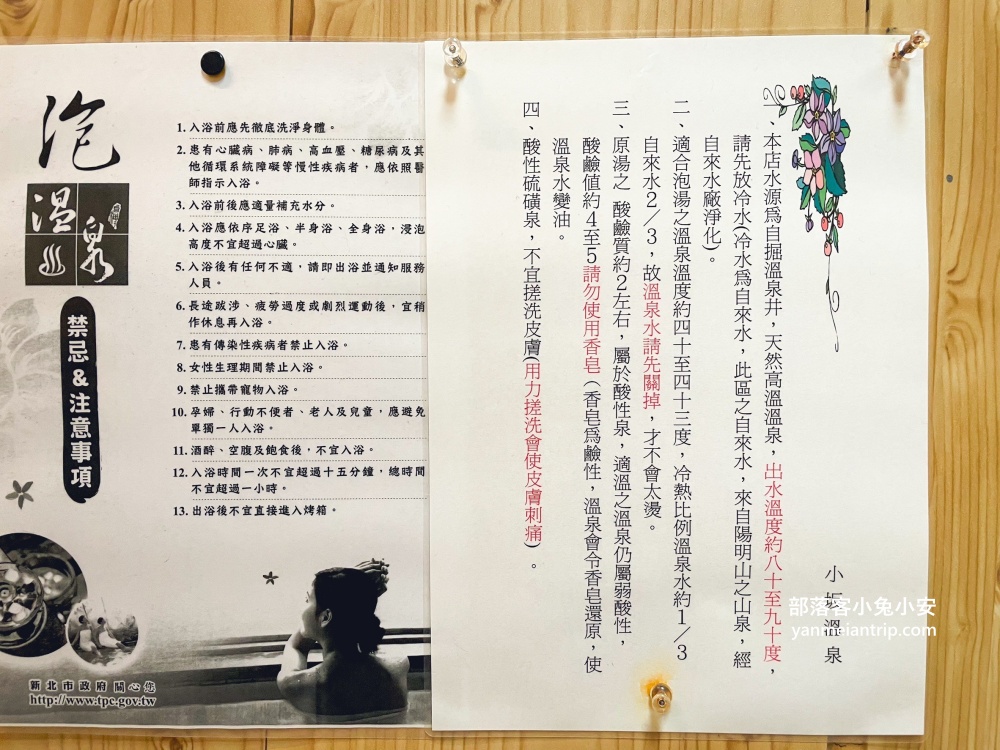 泡
溫泉
禁忌&注意事項
1. 入浴前應先徹底洗淨身體。
2. 患有心臟病、肺病、高血壓、糖尿病及其
他循環系統障礙等慢性疾病者，應依照醫
師指示入浴。
3. 入浴前後應適量補充水分。
4. 入浴應依序足浴、半身浴、全身浴，浸泡
高度不宜超過心臟。
5. 入浴後有任何不適，請即出浴並通知服務
人員。
6. 長途跋涉、疲勞過度或劇烈運動後，宜稍
作休息再入浴。
7. 患有傳染性疾病者禁止入浴。
8. 女性生理期間禁止入浴。
9. 禁止攜帶寵物入浴。
10. 孕婦、行動不便者、老人及兒童，應避免
單獨一人入浴。
11. 酒醉、空腹及飽食後，不宜入浴。
12. 入浴時間一次不宜超過十五分鐘，總時間
不宜超過一小時。
13. 出浴後不宜直接進入烤箱。
新北市政府關心您
http://www.tpc.gov.tw
一、本店水源為自掘溫泉井，天然高溫溫泉，出水溫度約八十至九十度，
請先放冷水(冷水為自來水，此區之自來水，來自陽明山之山泉，經
自來水廠淨化)。
二、適合泡湯之溫泉溫度約四十至四十三度，冷熱比例溫泉水約1／3
自來水2／3，故溫泉水請先關掉，才不會太燙。
三、原湯之 酸鹼質約2左右，屬於酸性泉，適溫之溫泉仍屬弱酸性，
酸鹼值約4至5請勿使用香皂（香皂為鹼性，溫泉會令香皂還原，使
溫泉水變油。
四、酸性硫磺泉，不宜搓洗皮膚(用力搓洗會使皮膚刺痛)。
小坂溫泉
部落客小兔小安
yanmeiantrip.com